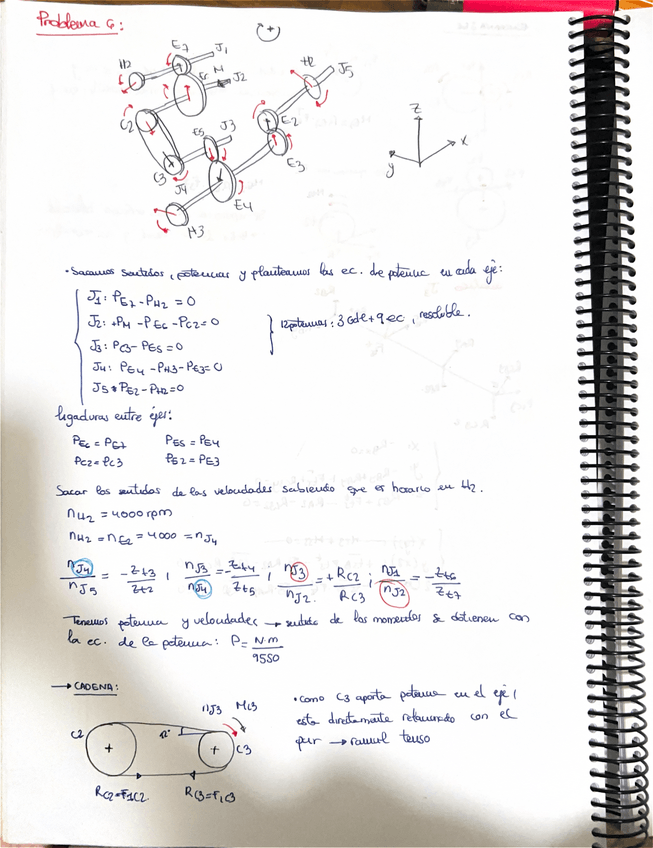 Problema 6:
E7 J1
H2 E6 M J2 H2 J5
C2 E5 J3 E2
C3 J4 E3
E4
H3
z
x
y
• Sacamos sentidos, potencias y planteamos las ec. de potencia en cada eje:
J1: PE7 - PH2 = 0
J2: +PM - PE6 - PC2 = 0
J3: PC3 - PE5 = 0
12 potencias: 3 Gdl + 9 ec, resoluble.
J4: PE4 - PH3 - PE3 = 0
J5 PE2 - PH2 = 0
ligaduras entre ejes:
PE6 = PE7 PE5 = PE4
PC2 = PC3 PE2 = PE3
Sacar los sentidos de las velocidades sabiendo que es horario en H2.
nH2 = 4000 rpm
nH2 = nE2 = 4000 = nJ4
nJ4/nJ5 = -Zt3/Zt2 ; nJ3/nJ4 = -Zt4/Zt5 ; nJ3/nJ2 = +RC2/RC3 ; nJ1/nJ2 = -Zt6/Zt7
Tenemos potencia y velocidades → sentido de los momentos se obtienen con
la ec. de la potencia: P = N·m/9550
→ CADENA:
nJ3 MC3
C2 C3
RC2=F1C2 RC3=F1C3
• Como C3 aporta potencia en el eje,
esta directamente relacionado con el
par → ramal tenso